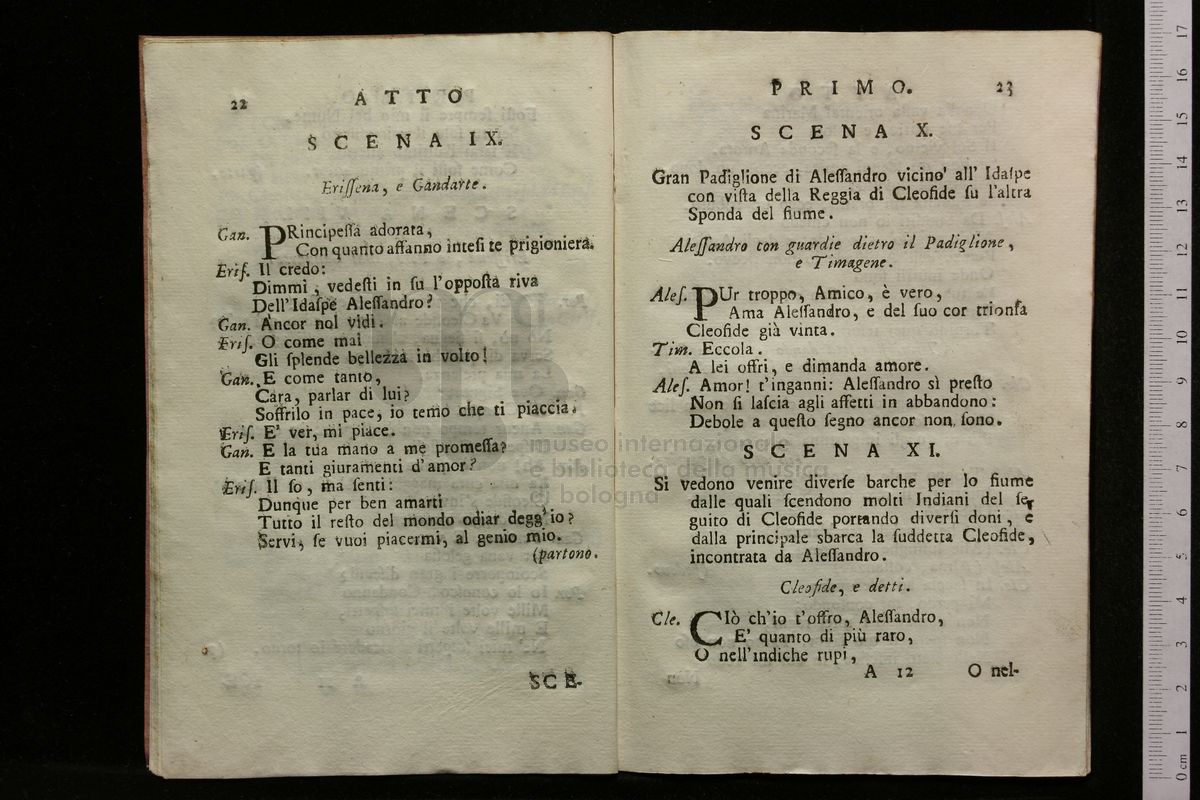 22
ATTO
SCENA IX.
Eriſſena, e Gandarte.
Gan. PRincipeſſa adorata,
Con quanto affanno inteſi te prigioniera.
Eriſ. Il credo:
Dimmi, vedeſti in ſu l'oppoſta riva
Dell'Idaſpe Aleſſandro?
Gan. Ancor nol vidi.
Eriſ. O come mai
Gli ſplende bellezza in volto!
Gan. E come tanto,
Cara, parlar di lui?
Soffrilo in pace, io temo che ti piaccia.
Eriſ. E' ver, mi piace.
Gan. E la tua mano a me promeſſa?
E tanti giuramenti d'amor?
Eriſ. Il ſo, ma ſenti:
Dunque per ben amarti
Tutto il reſto del mondo odiar degg'io?
Servi, ſe vuoi piacermi, al genio mio.
(partono.
SCE-
PRIMO. 23
SCENA X.
Gran Padiglione di Aleſſandro vicino all' Idaſpe
con viſta della Reggia di Cleofide ſu l'altra
Sponda del fiume.
Aleſſandro con guardie dietro il Padiglione,
e Timagene.
Aleſ. PUr troppo, Amico, è vero,
Ama Aleſſandro, e del ſuo cor trionfa
Cleofide già vinta.
Tim. Eccola.
A lei offri, e dimanda amore.
Aleſ. Amor! t'inganni: Aleſſandro sì preſto
Non ſi laſcia agli affetti in abbandono:
Debole a queſto ſegno ancor non ſono.
SCENA XI.
Si vedono venire diverſe barche per lo fiume
dalle quali ſcendono molti Indiani del ſe-
guito di Cleofide portando diverſi doni, e
dalla principale sbarca la ſuddetta Cleofide,
incontrata da Aleſſandro.
Cleofide, e detti.
Cle. CIò ch'io t'offro, Aleſſandro,
E' quanto di più raro,
O nell'indiche rupi,
A 12 O nel-
museo internazionale
e biblioteca della musica
di bologna
0 cm 1 2 3 4 5 6 7 8 9 10 11 12 13 14 15 16 17